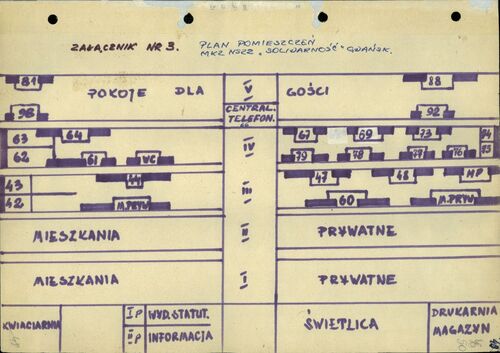 ZAŁĄCZNIK NR 3. PLAN POMIESZCZEŃ
MKZ NSZZ „SOLIDARNOŚĆ" GDAŃSK.
81 V 88
POKOJE DLA GOŚCI
96 CENTRAL. TELEFON. 92
63 64 67 69 73 74
IV
62 61 WC 79 78 77 76 75
43 44 47 48 MP
III
42 M.PRYW 60 M.PRYW
MIESZKANIA II PRYWATNE
MIESZKANIA I PRYWATNE
KWIACIARNIA
I P WYD. STATUT.
II P INFORMACJA
ŚWIETLICA
DRUKARNIA
MAGAZYN